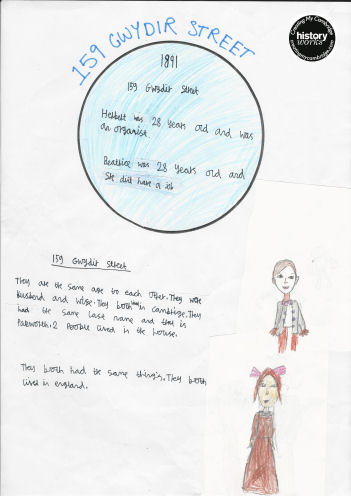 159 GWYDIR STREET
Creating My Cambridge
history
WORKS
creatingmycambridge.com
1891
159 Gwydir Street
Herbert was 28 years old and was
an organist.
Beatrice was 28 years old and
She didt have a job
159 Gwydir Street
They are the same age to each other. They were
husband and wife. They both in cambridge. They
had the same last name and that is
2 people lived in the house.
They both had the same thing's. They both
lived in england.